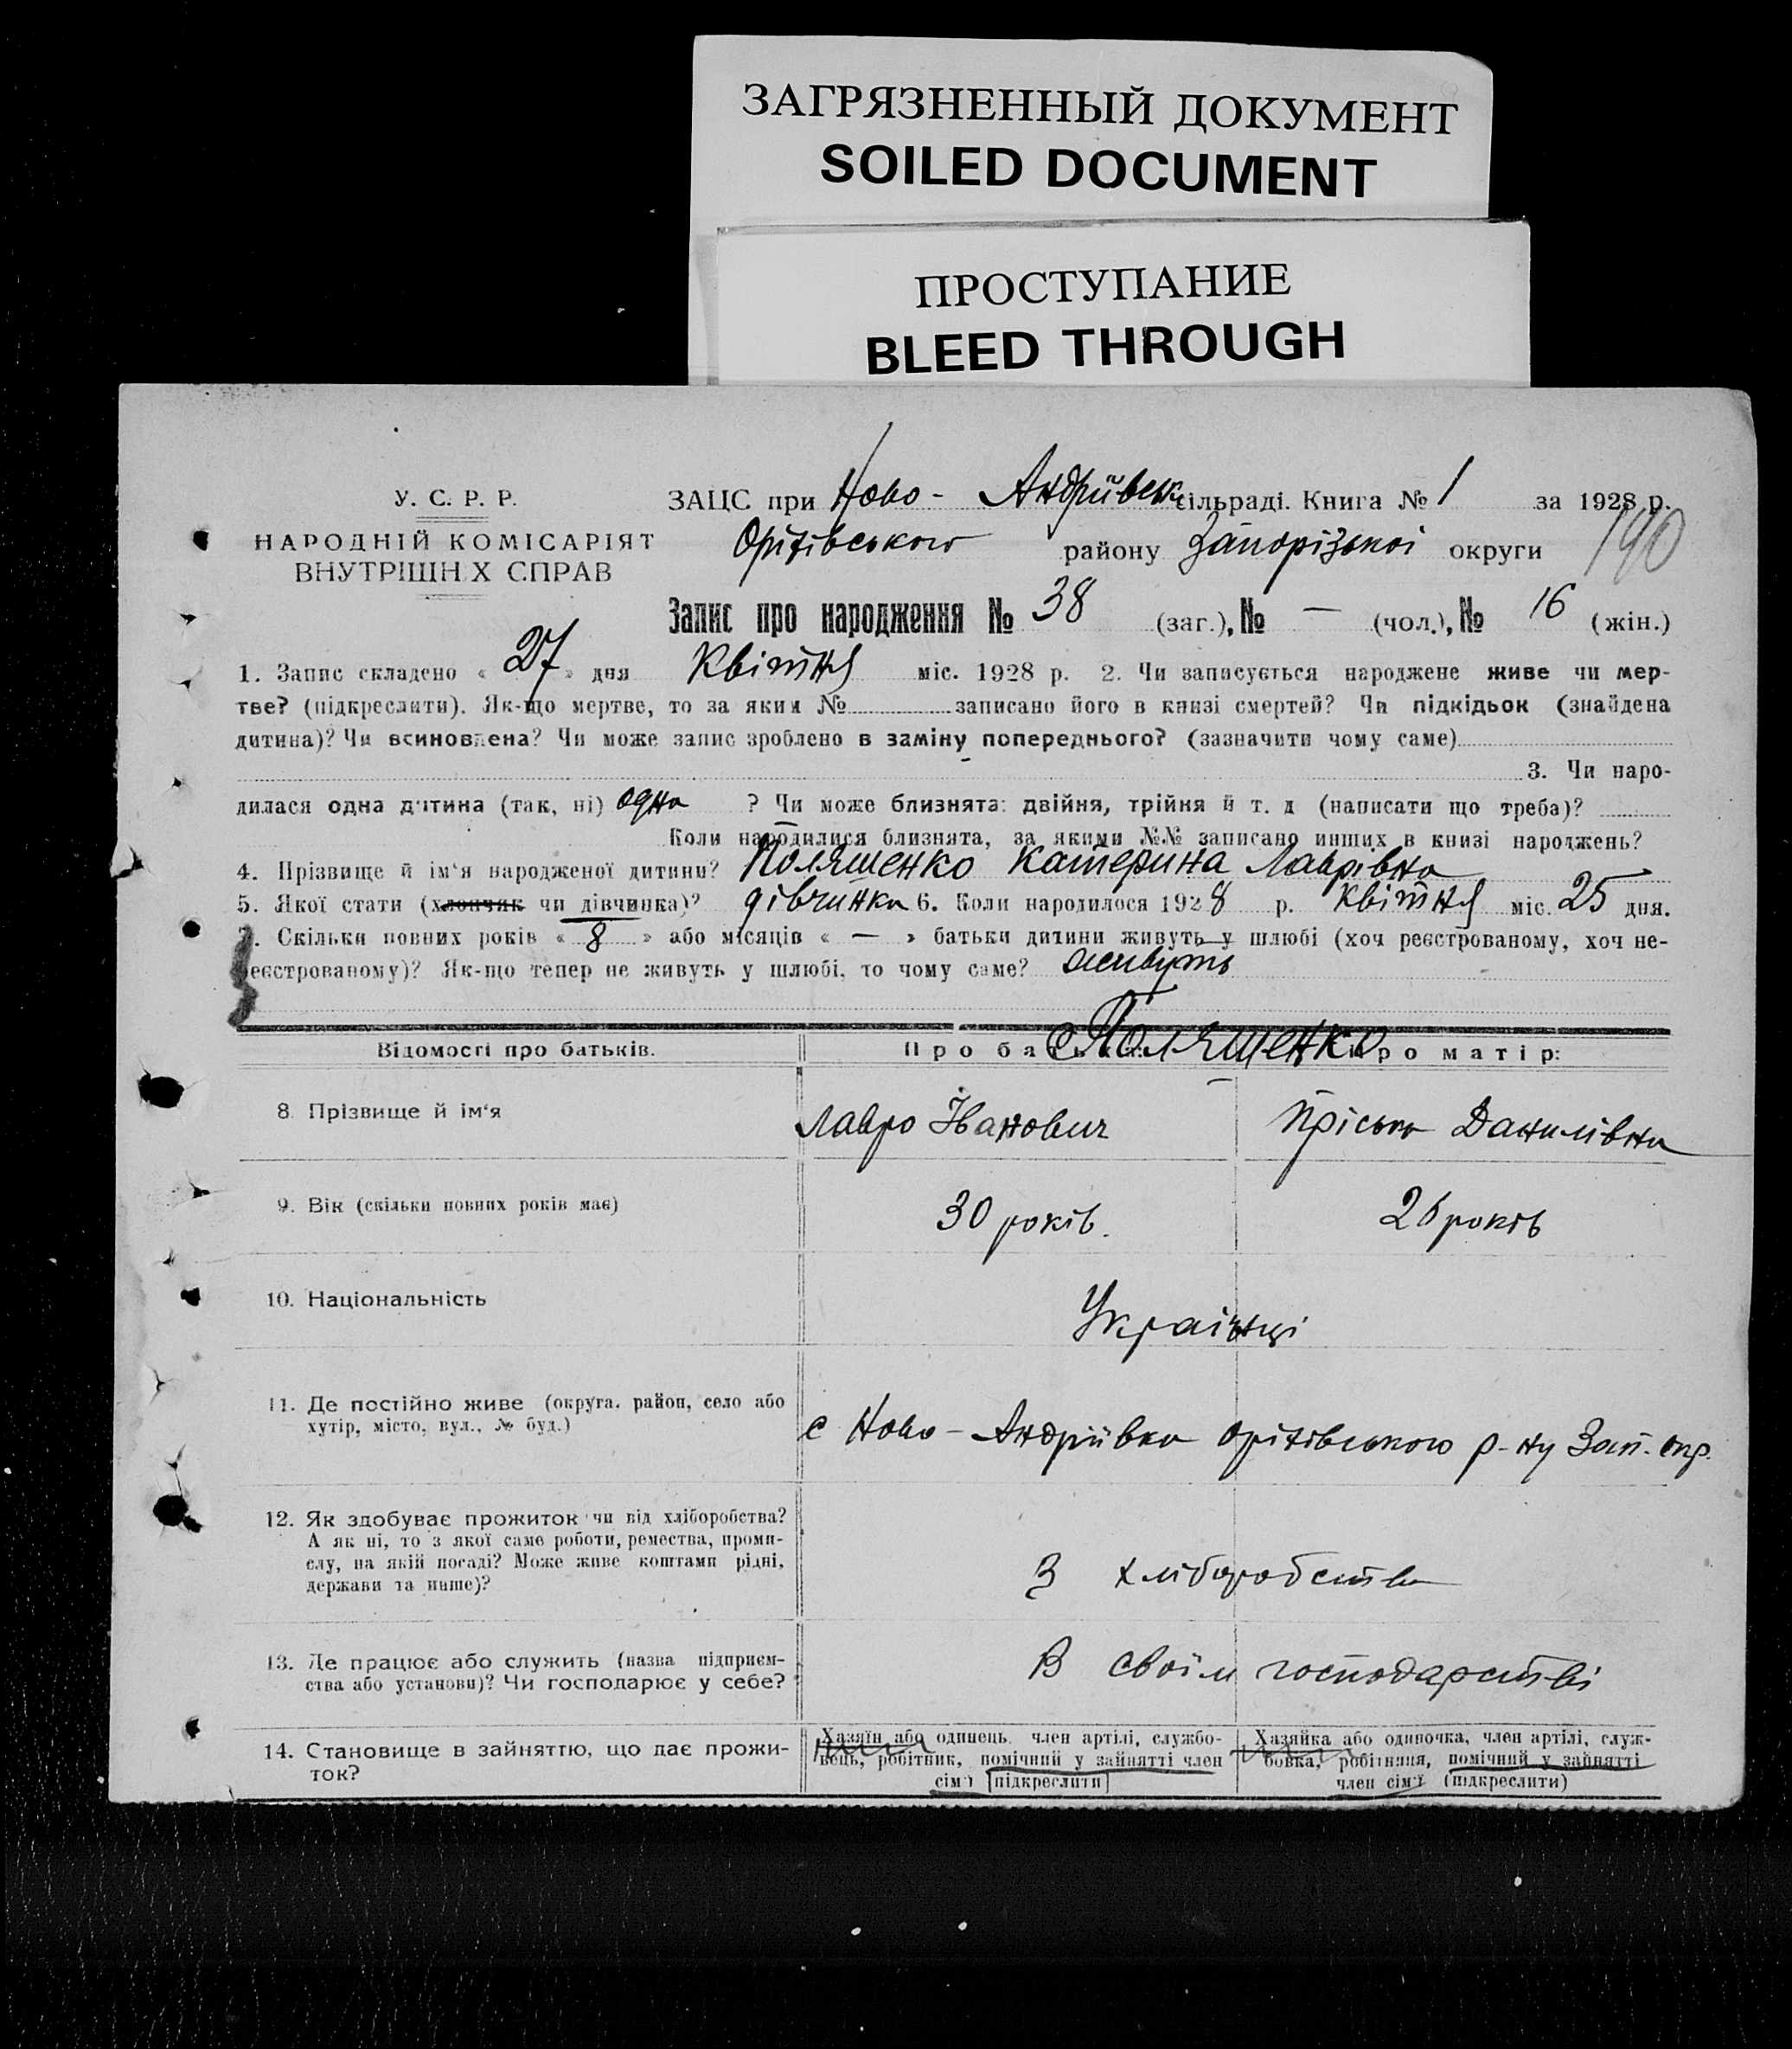 ЗАГРЯЗНЕННЫЙ ДОКУМЕНТ
SOILED DOCUMENT
ПРОСТУПАНИЕ
BLEED THROUGH
У. С. Р. Р.
НАРОДНІЙ КОМІСАРІЯТ
ВНУТРІШН Х СПРАВ
ЗАЦС при Ново - Андріївськ сільраді. Книга № 1 за 1928 р.
Оріхівського району Запорізької округи 190
Запис про народження № 38 (заг.), № — (чол.), № 16 (жін.)
1. Запис складено « 27 » дня квітня міс. 1928 р. 2. Чи записується народжене живе чи мер-
тве? (підкреслити). Як-що мертве, то за яким № записано його в книзі смертей? Чи підкідьок (знайдена
дитина)? Чи всиновлена? Чи може запис зроблено в заміну попереднього? (зазначити чому саме)
3. Чи наро-
дилася одна дитина (так, ні) одна ? Чи може близнята: двійня, трійня й т. д (написати що треба)?
Коли народилися близнята, за якими №№ записано инших в книзі народжень?
4. Прізвище й ім'я народженої дитини? Поляшенко Катерина Лаврівна
5. Якої стати (хлопчик чи дівчинка)? дівчинка 6. Коли народилося 1928 р. квітня міс. 25 дня.
7. Скільки повних років « 8 » або місяців « — » батьки дитини живуть у шлюбі (хоч реєстрованому, хоч не-
реєстрованому)? Як-що тепер не живуть у шлюбі, то чому саме? живуть
Відомості про батьків. Про батька: Поляшенко Про матір:
8. Прізвище й ім'я Лавро Іванович Пріська Данилівна
9. Вік (скільки повних років має) 30 років. 26 років
10. Національність Українці
11. Де постійно живе (округа, район, село або
хутір, місто, вул., № буд.)
с Ново - Андріївка Оріхівського р-ну Зап. окр.
12. Як здобуває прожиток чи від хліборобства?
А як ні, то з якої саме роботи, ремества, проми-
слу, на якій посаді? Може живе коштами рідні,
держави та инше)?
З хліборобства
13. Де працює або служить (назва підприєм-
ства або установи)? Чи господарює у себе?
В своїм господарстві
14. Становище в зайняттю, що дає прожи-
ток?
Хазяїн або одинець член артілі, службо-
вець, робітник, помічний у зайнятті член
сім'ї (підкреслити)
Хазяйка або одиночка, член артілі, служ-
бовка, робітниця, помічний у зайнятті
член сім'ї (підкреслити)